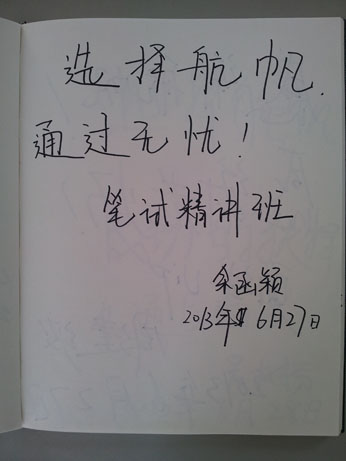 选择航帆.
通过无忧!
笔试精讲班
余函颖
2013年6月27日